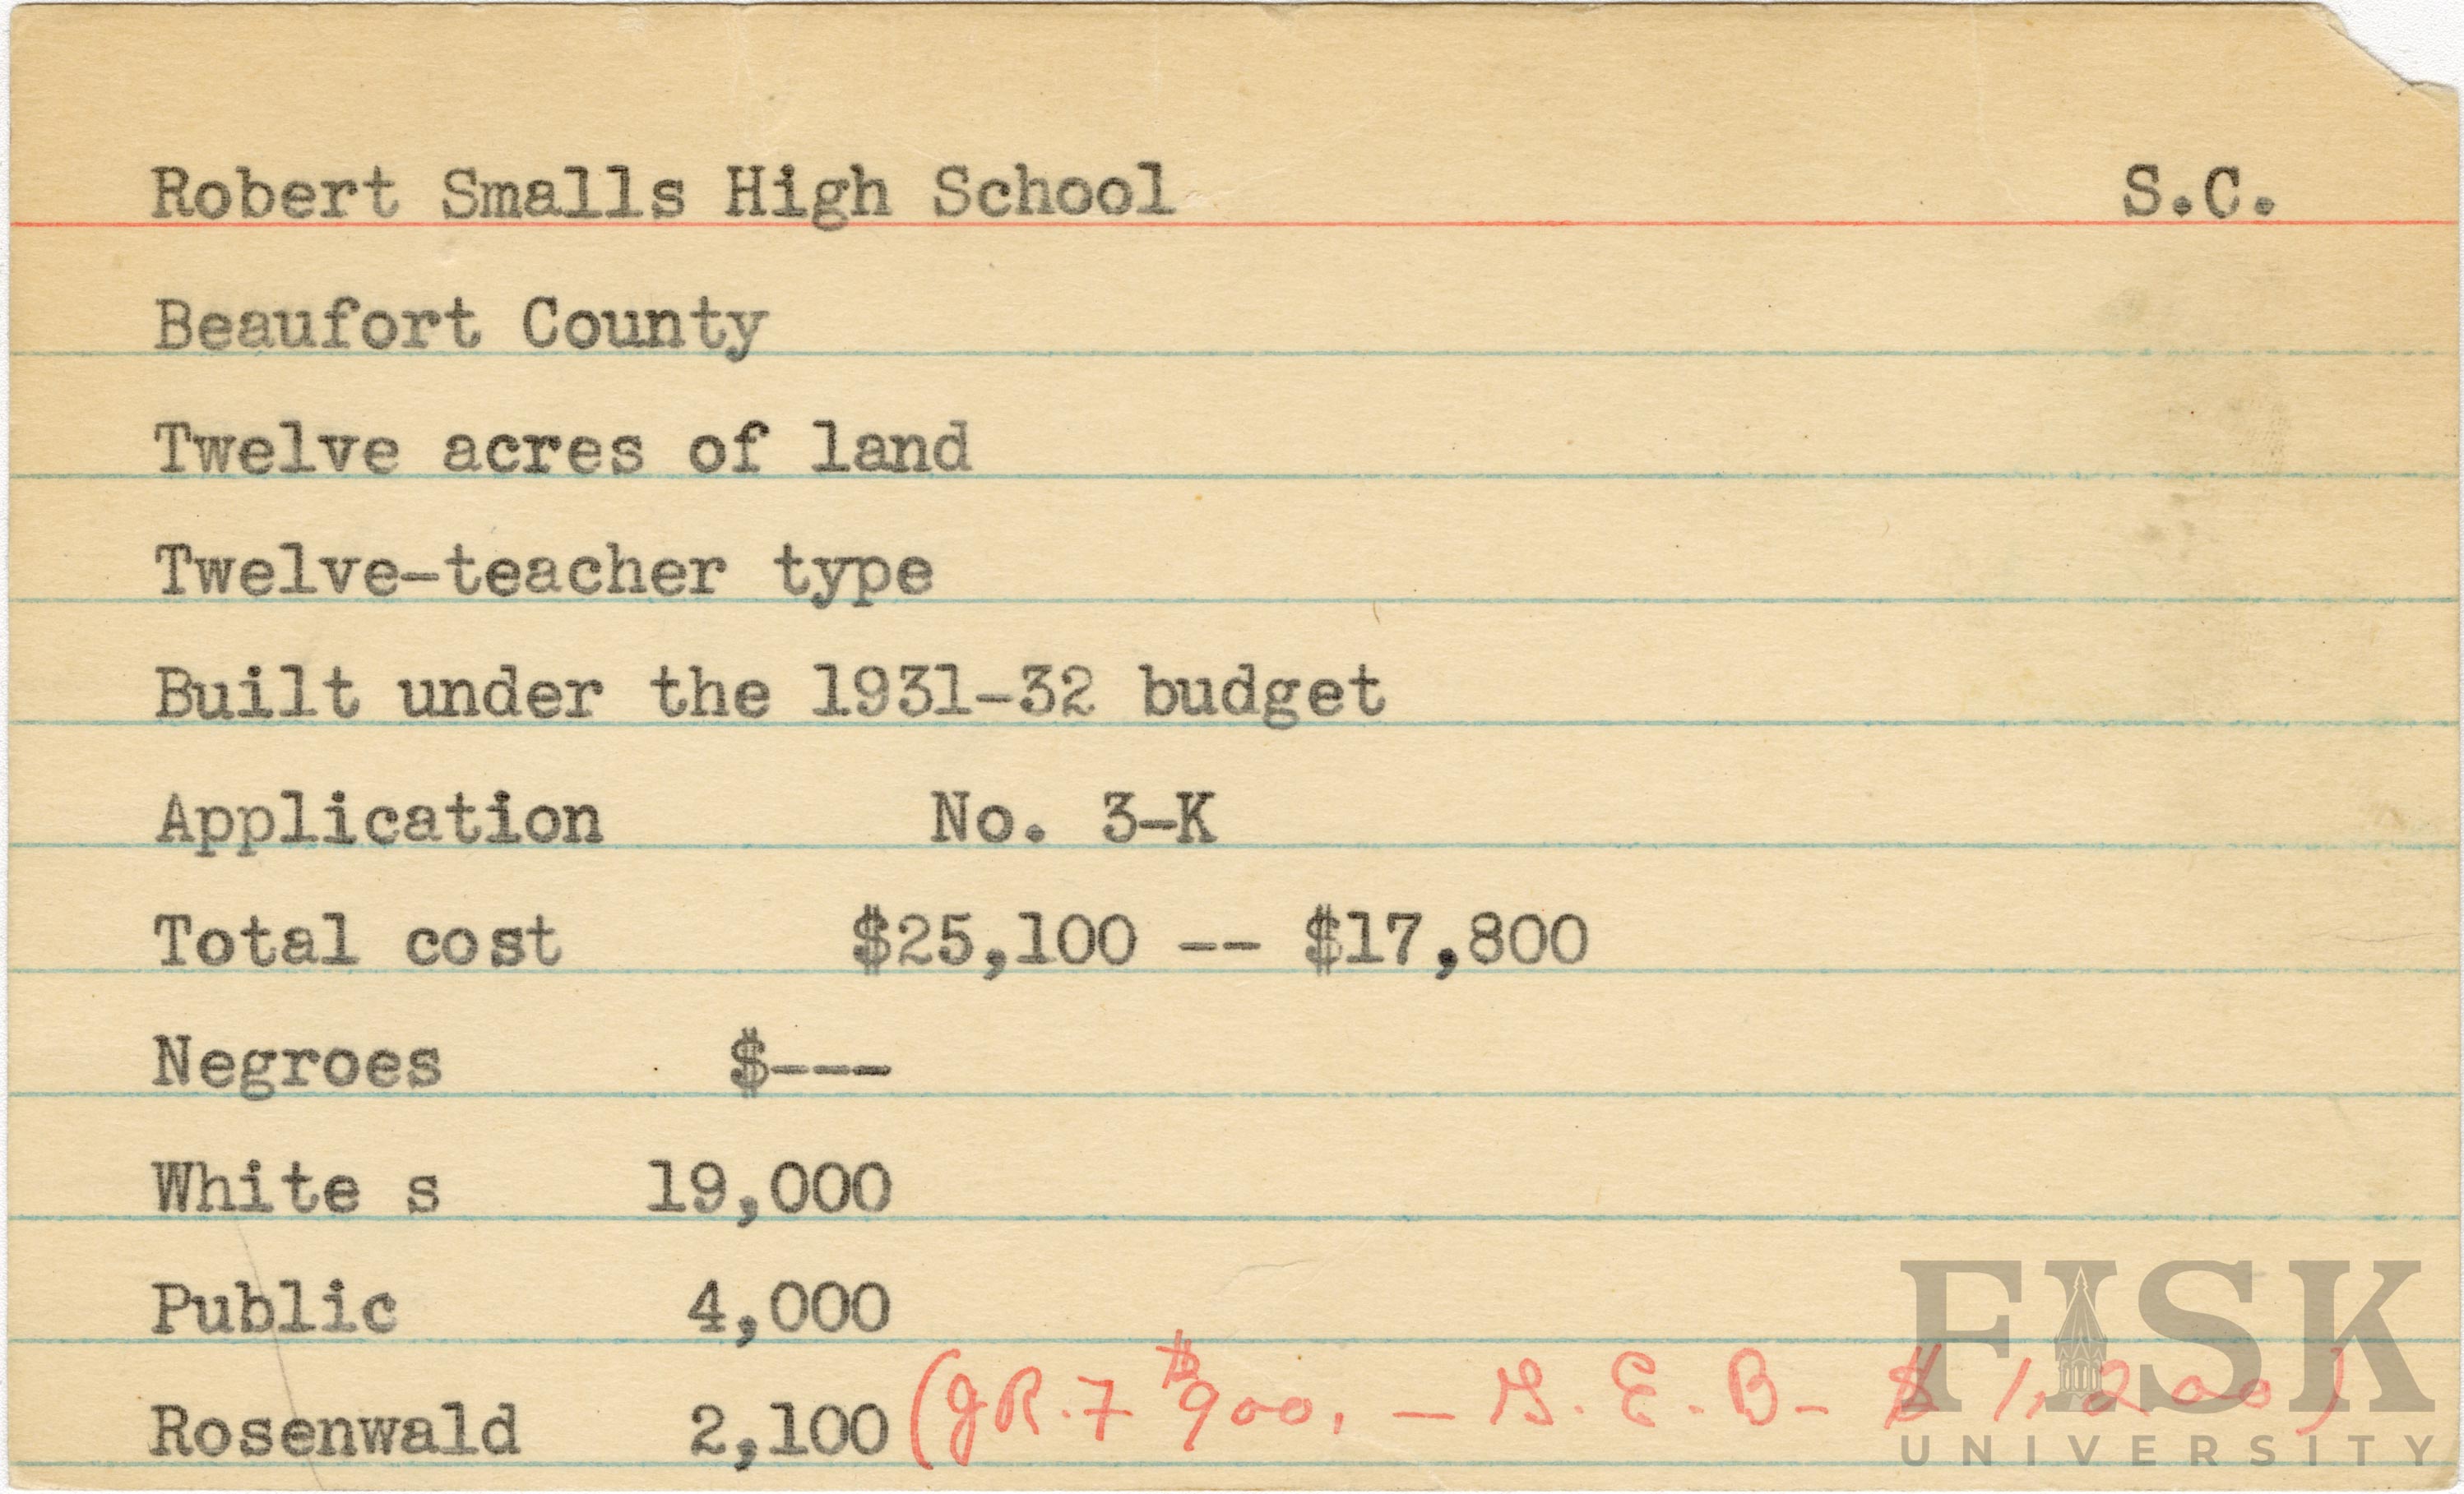 Robert Smalls High School S.C.
Beaufort County
Twelve acres of land
Twelve-teacher type
Built under the 1931-32 budget
Application No. 3-K
Total cost $25,100 -- $17,800
Negroes $---
White s 19,000
Public 4,000
Rosenwald 2,100 (JR.7 $900. — G.E.B- $1,200)
FISK
UNIVERSITY